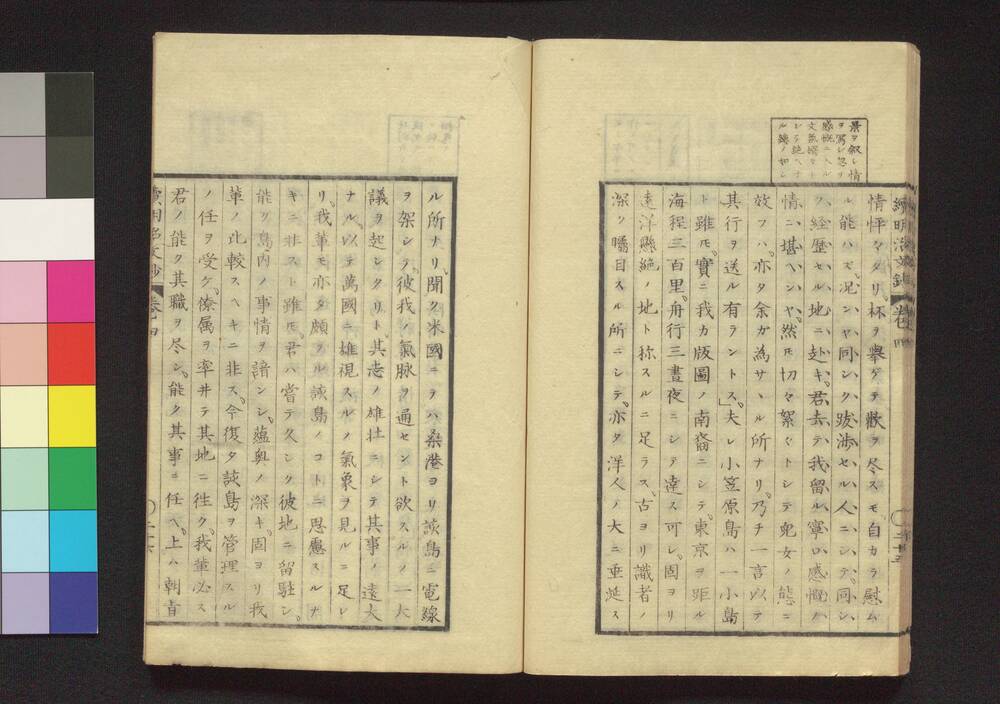 景ヲ叙シ情
ヲ寫シ忽リ
感慨ニ入ル
文氣
ル
續明治文鈔 卷四
情怦々タリ。杯ヲ擧ゲテ歡ヲ尽スモ自カラ慰ム
ル能ハズ。况ンヤ同シク跋渉セル人ニシテ、同シ
ク経歴セル地ニ赴キ、君去テ我留ル、寧ロ感慨ノ
情ニ堪ヘンヤ。然𪜈切々絮々トシテ兒女ノ態ニ
效フハ、亦タ余ガ為サヽル所ナリ。乃チ一言以テ
其行ヲ送ル有ラントス。」夫レ小笠原島ハ一小島
ト雖𪜈、實ニ我カ版圖ノ南裔ニシテ、東京ヲ距ル
海程三百里、舟行三晝夜ニシテ達ス可レ。固ヨリ
遠洋懸絶ノ地ト称スルニ足ラス。古ヨリ識者ノ
深ク矚目スル所ニシテ、亦タ洋人ノ大ニ垂涎ス
ル所ナリ。聞ク米國ニテハ桑港ヨリ該島ニ電線
ヲ架シテ、彼我ノ氣脉ヲ通セント欲スルノ一大
議ヲ起シタリト。其志ノ雄壮ニシテ其事ノ遠大
ナル、以テ萬國ニ雄視スルノ氣象ヲ見ルニ足レ
リ。我輩モ亦タ頗ブル該島ノコトニ思慮スルナ
キニ非スト雖𪜈、君ハ嘗テ久シク彼地ニ留駐シ、
能ク島内ノ事情ヲ諳ンシ、蘊奥ノ深キ、固ヨリ我
輩ノ比較スヘキニ非ス。今復タ該島ヲ管理スル
ノ任ヲ受ケ、僚属ヲ率井テ其地ニ往ク。我輩必ス
君ノ能ク其職ヲ尽シ、能ク其事ニ任ヘ、上ハ朝旨
卷四